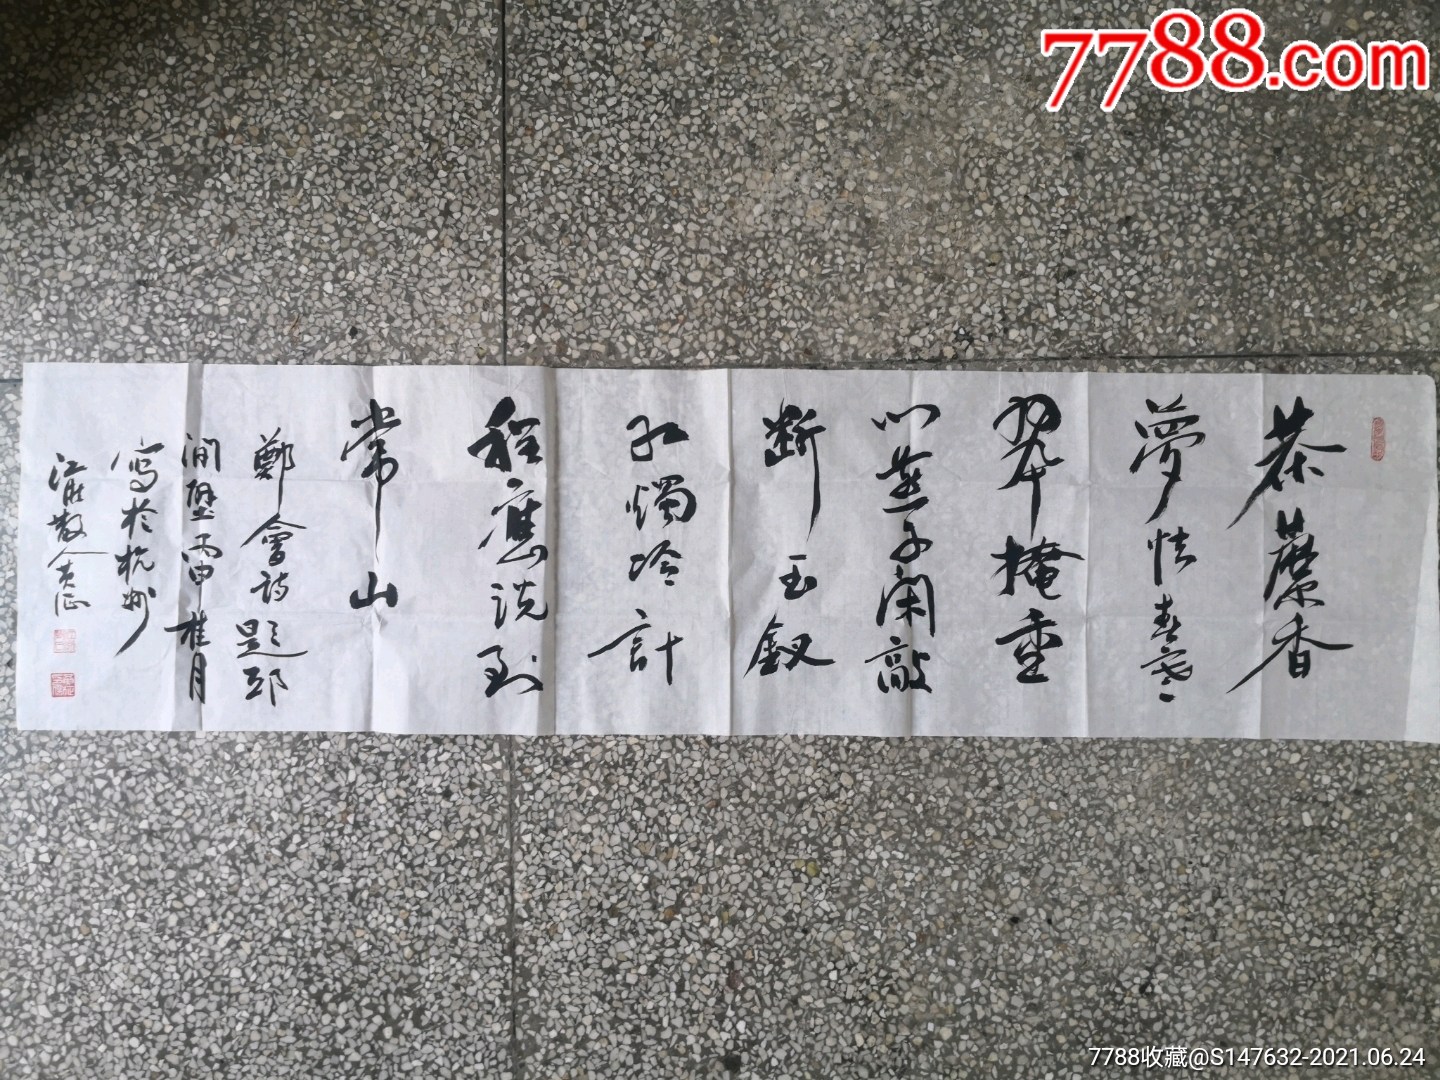 7788.com
荼蘼香
夢怯春寒
翠掩重
门燕子闲敲
断玉釵
红燭冷計
程應説到
常山
鄭會詩題邸
間壁丙申桂月
寫於杭州
江散人
7788收藏@S147632-2021.06.24